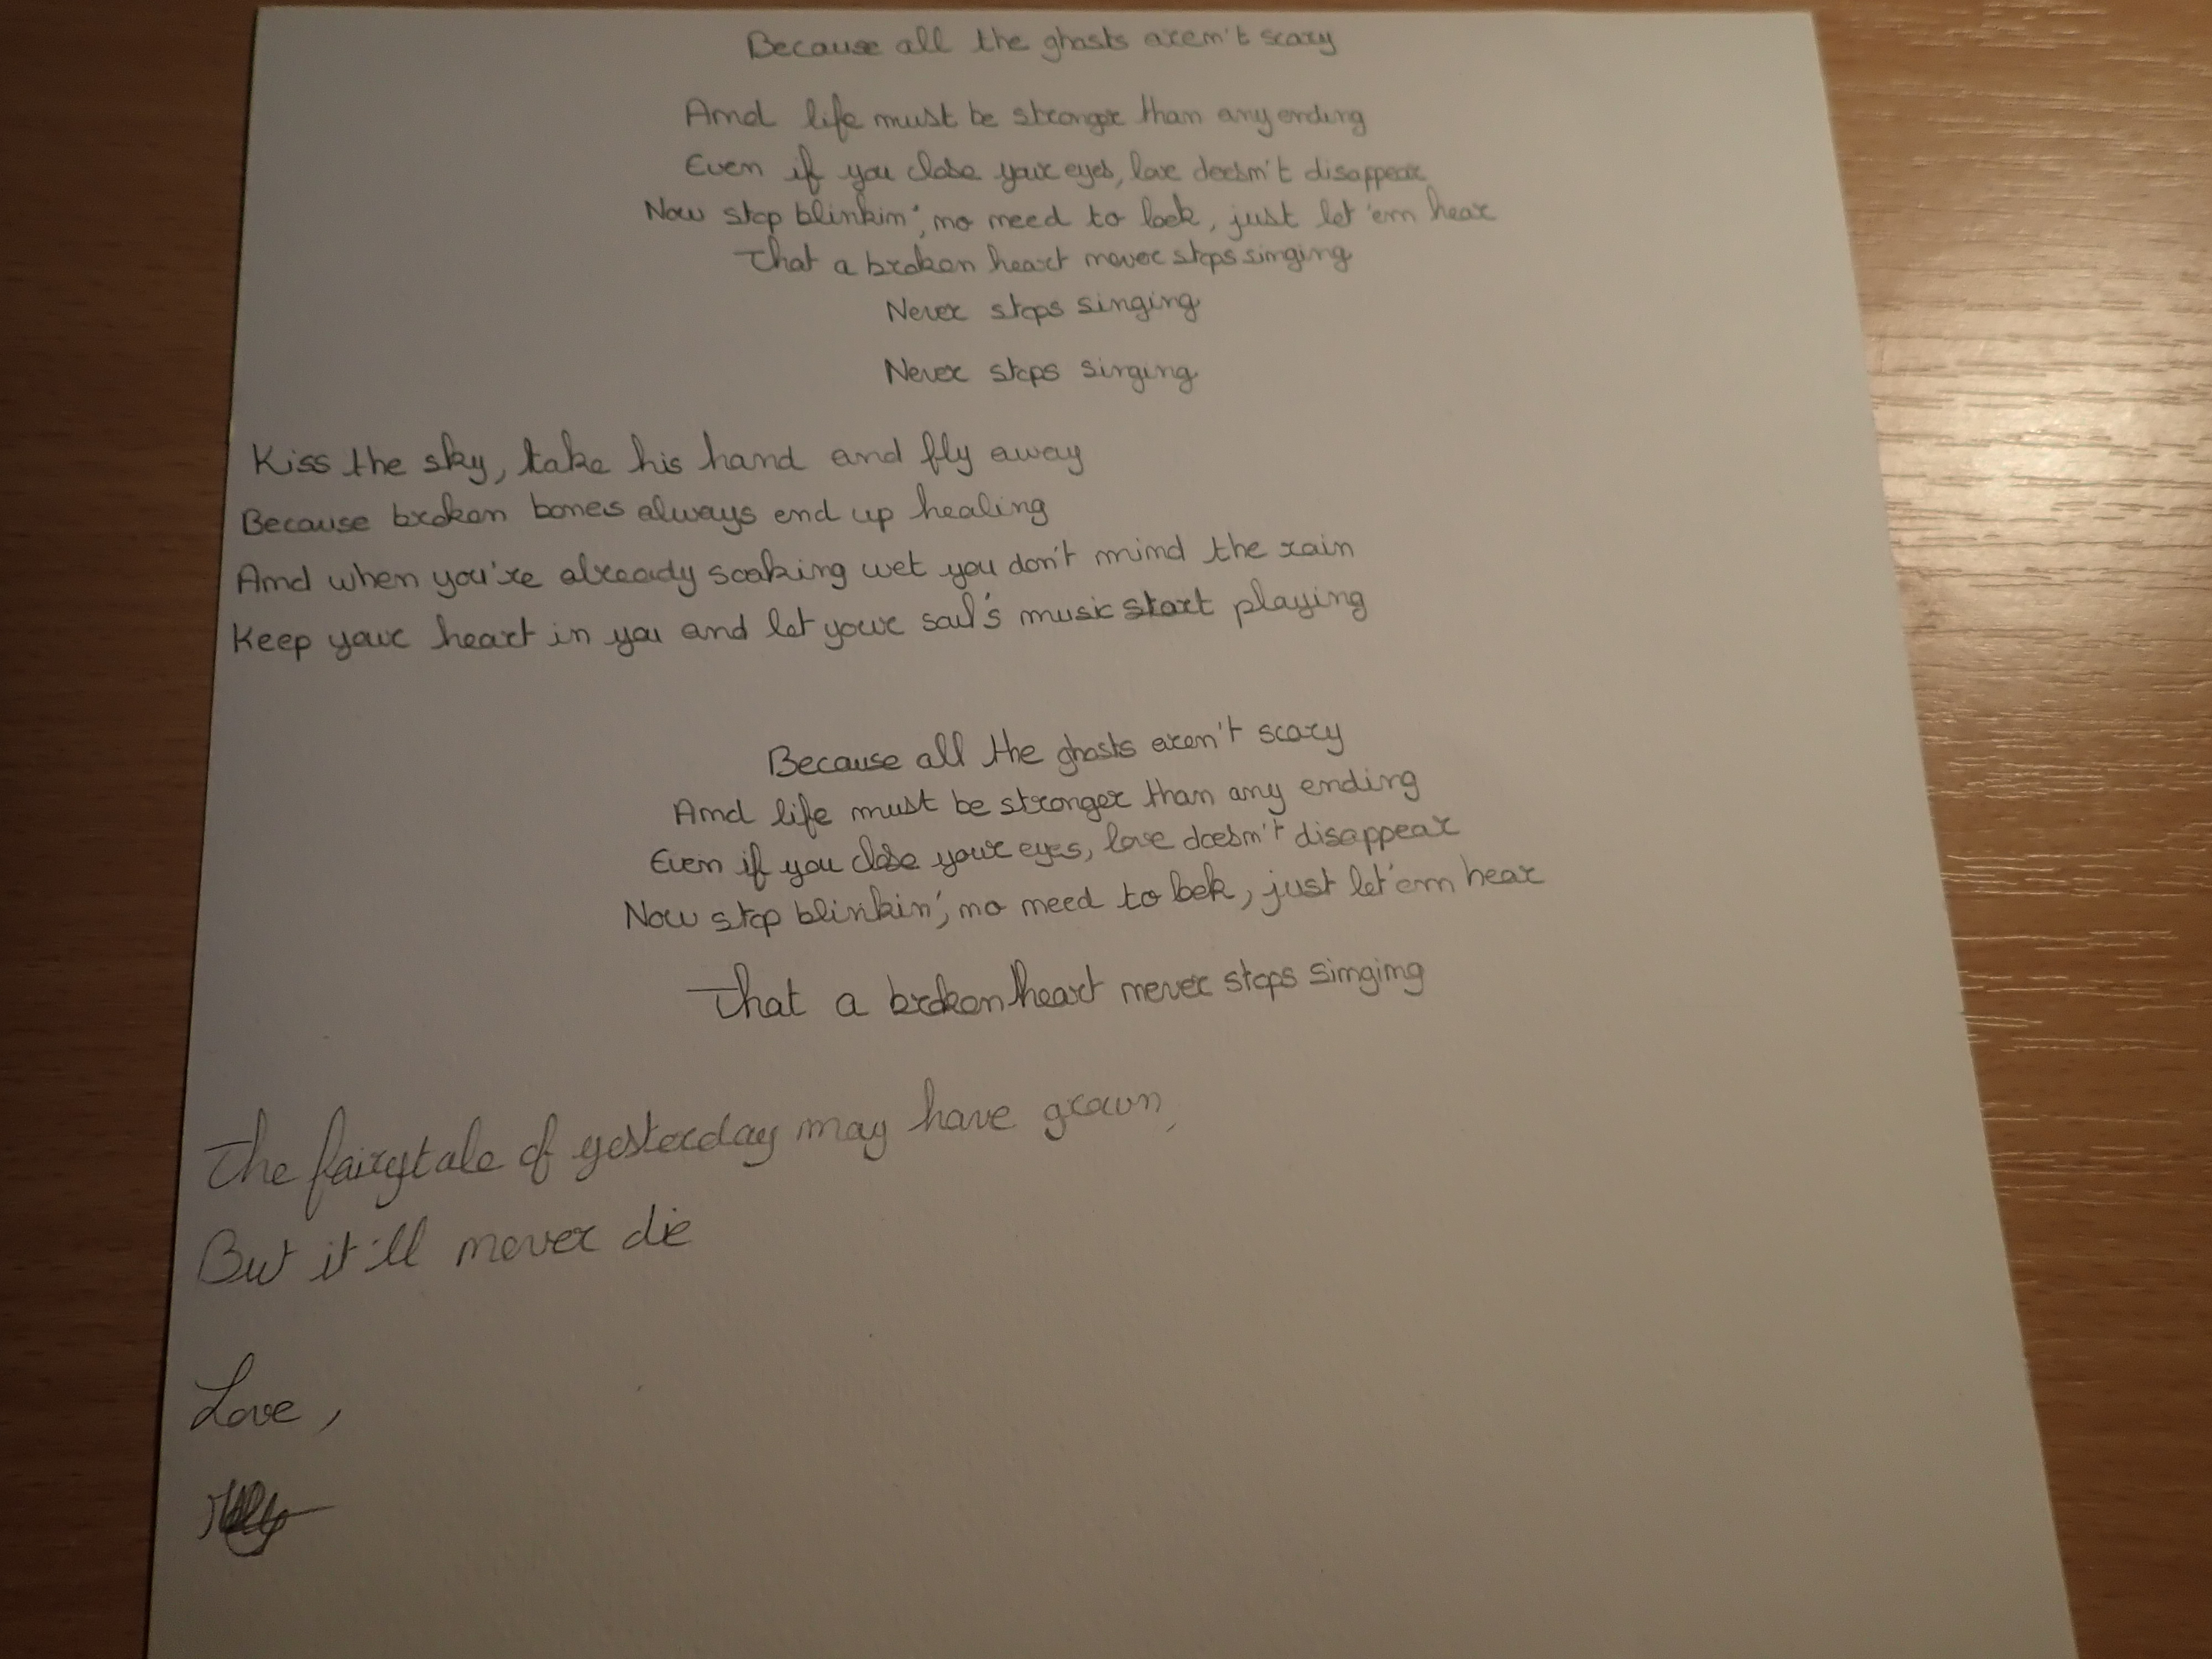 Because all the ghosts aren't scary
And life must be stronger than any ending
Even if you close your eyes, love doesn't disappear
Now stop blinkin', no need to look, just let 'em hear
That a broken heart never stops singing
Never stops singing
Never stops singing
Kiss the sky, take his hand and fly away
Because broken bones always end up healing
And when you're already soaking wet you don't mind the rain
Keep your heart in you and let your soul's music start playing
Because all the ghosts aren't scary
And life must be stronger than any ending
Even if you close your eyes, love doesn't disappear
Now stop blinkin', no need to look, just let 'em hear
That a broken heart never stops singing
The fairytale of yesterday may have grown,
But it'll never die
Love,